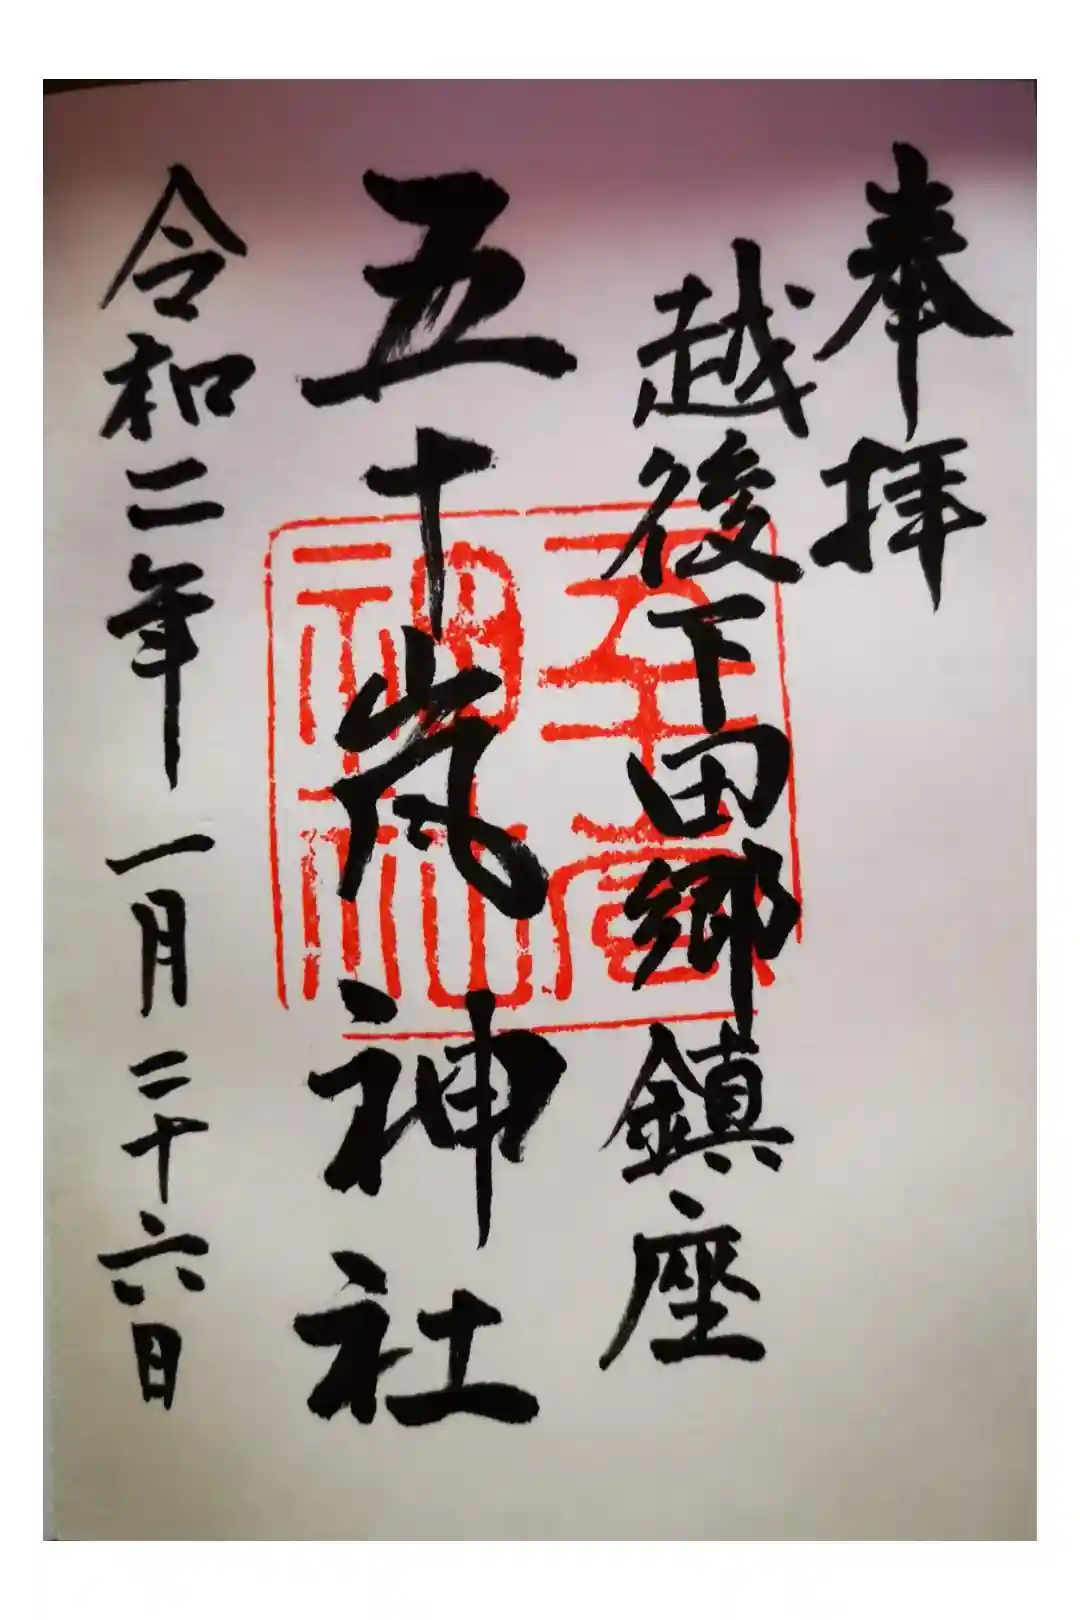 奉拝
越後下田郷鎮座
五十嵐神社
令和二年一月二十六日
五十嵐
神社